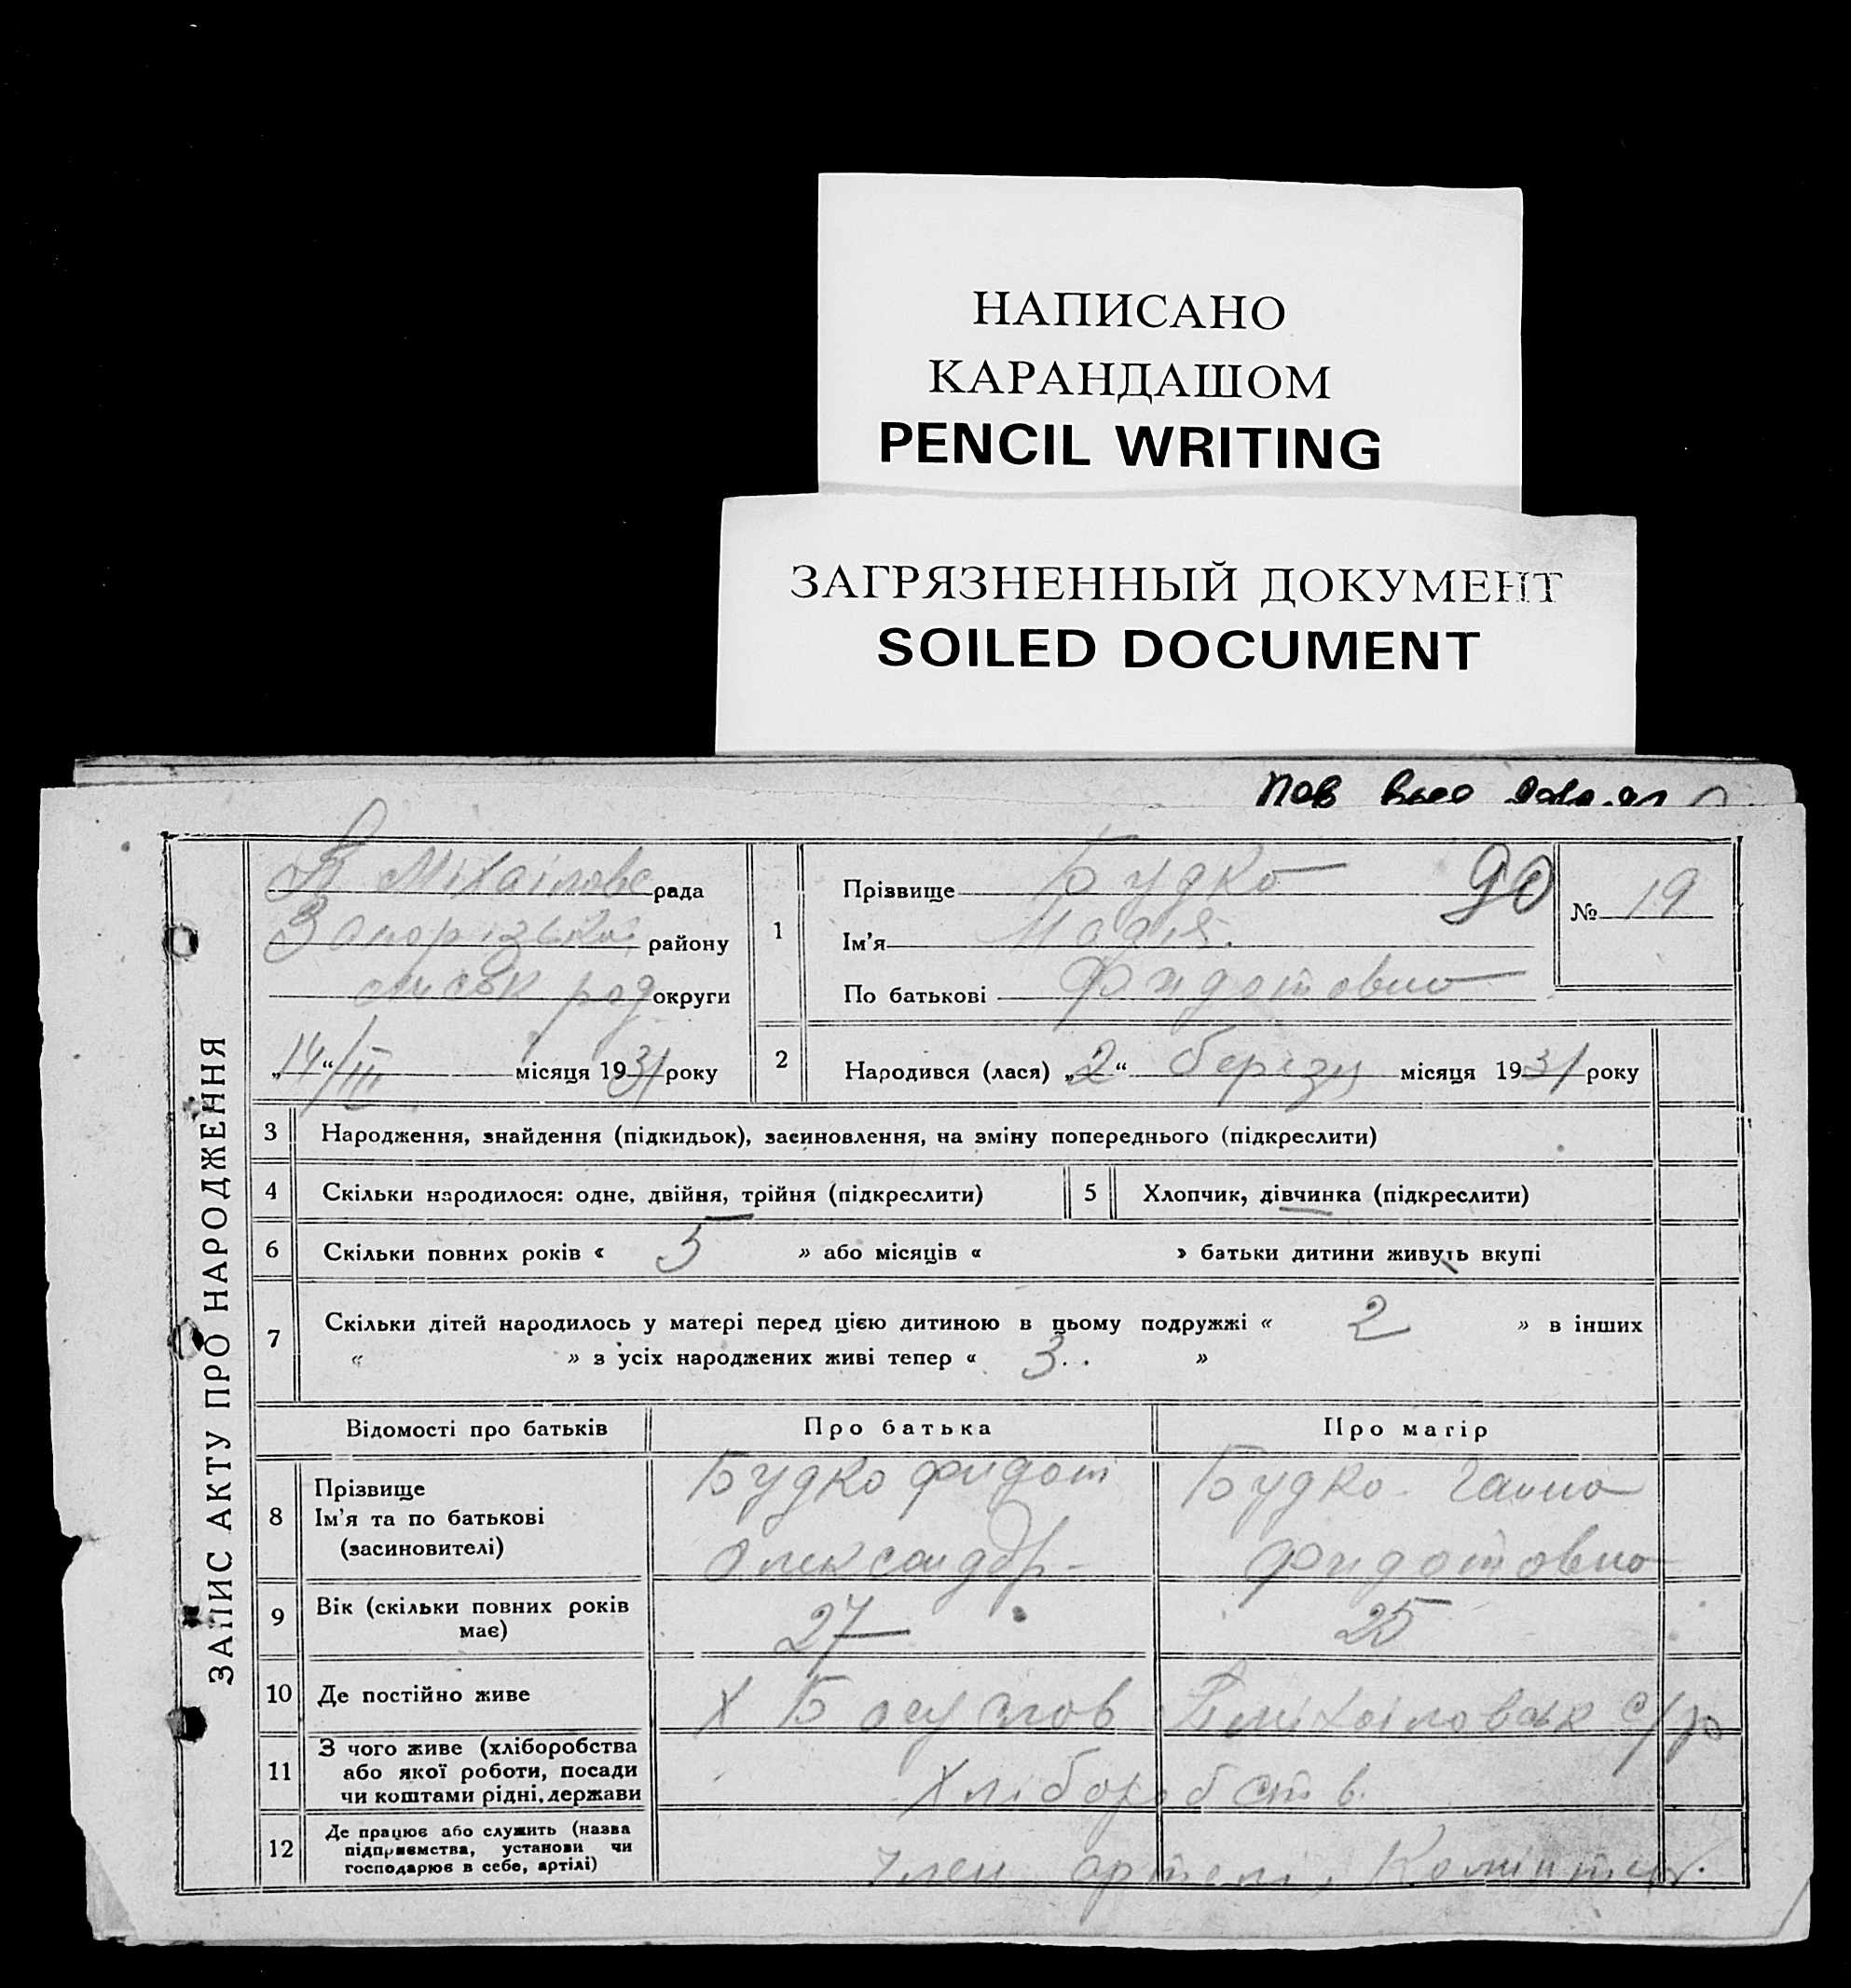 НАПИСАНО
КАРАНДАШОМ
PENCIL WRITING
ЗАГРЯЗНЕННЫЙ ДОКУМЕНТ
SOILED DOCUMENT
ЗАПИС АКТУ ПРО НАРОДЖЕННЯ
Міхаілове рада
Запорізьког району
міськ рад округи
„14“/III місяця 1931 року
1
Прізвище Будко 90
Ім'я Надія.
По батькові Фидотовно
№ 19
2 Народився (лася) „2“ березня місяця 1931 року
3 Народження, знайдення (підкидьок), засиновлення, на зміну попереднього (підкреслити)
4 Скільки народилося: одне, двійня, трійня (підкреслити)
5 Хлопчик, дівчинка (підкреслити)
6 Скільки повних років « 5 » або місяців « » батьки дитини живуть вкупі
7 Скільки дітей народилось у матері перед цією дитиною в цьому подружжі « 2 » в інших
« » з усіх народжених живі тепер « 3 »
Відомості про батьків Про батька Про матір
8 Прізвище
Ім'я та по батькові
(засиновителі)
Будко Фидот
Олександр-
Будко Ганно
Фидотовно
9 Вік (скільки повних років
має)
27 25
10 Де постійно живе Х Міхаіловськ с/р
11 З чого живе (хліборобства
або якої роботи, посади
чи коштами рідні, держави
Хліборобств.
12 Де працює або служить (назва
підприємства, установи чи
господарює в себе, артілі)
Член артелі, Комінтер.